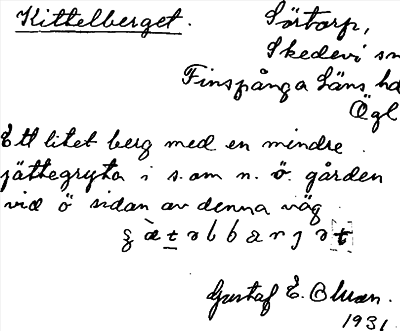 Kittelberget.
Sörtorp,
Skedevi sn
Finspånga Läns hd
Ögl
Ett litet berg med en mindre
jättegryta i s. om n. ö. gården
vid ö sidan av denna väg.
Gustaf E.
1931.